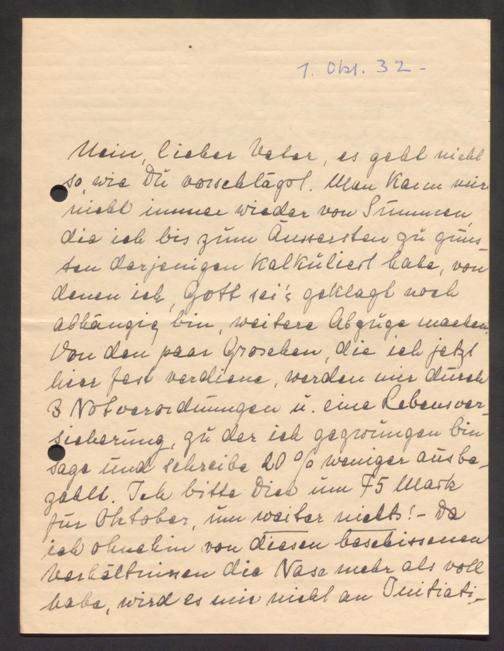 1. Okt. 32 -
Nein, lieber Vater, es geht nicht
so, wie Du vorschlägst. Man kann mir
nicht immer wieder von Summen,
die ich bis zum Äussersten zu guns-
ten derjenigen kalkuliert habe, von
denen ich, Gott sei's geklagt noch
abhängig bin, weitere Abzüge machen.
Von den paar Groschen, die ich jetzt
hier fest verdiene, werden mir durch
3 Notverordnungen u. eine Lebensver-
sicherung, zu der ich gezwungen bin
sage und schreibe 20 % weniger ausbe-
zahlt. Ich bitte Dich um 75 Mark
für Oktober, um weiter nichts! - Da
ich ohnehin von diesen beschissenen
Verhältnissen die Nase mehr als voll
habe, wird es mir nicht an Initiati-